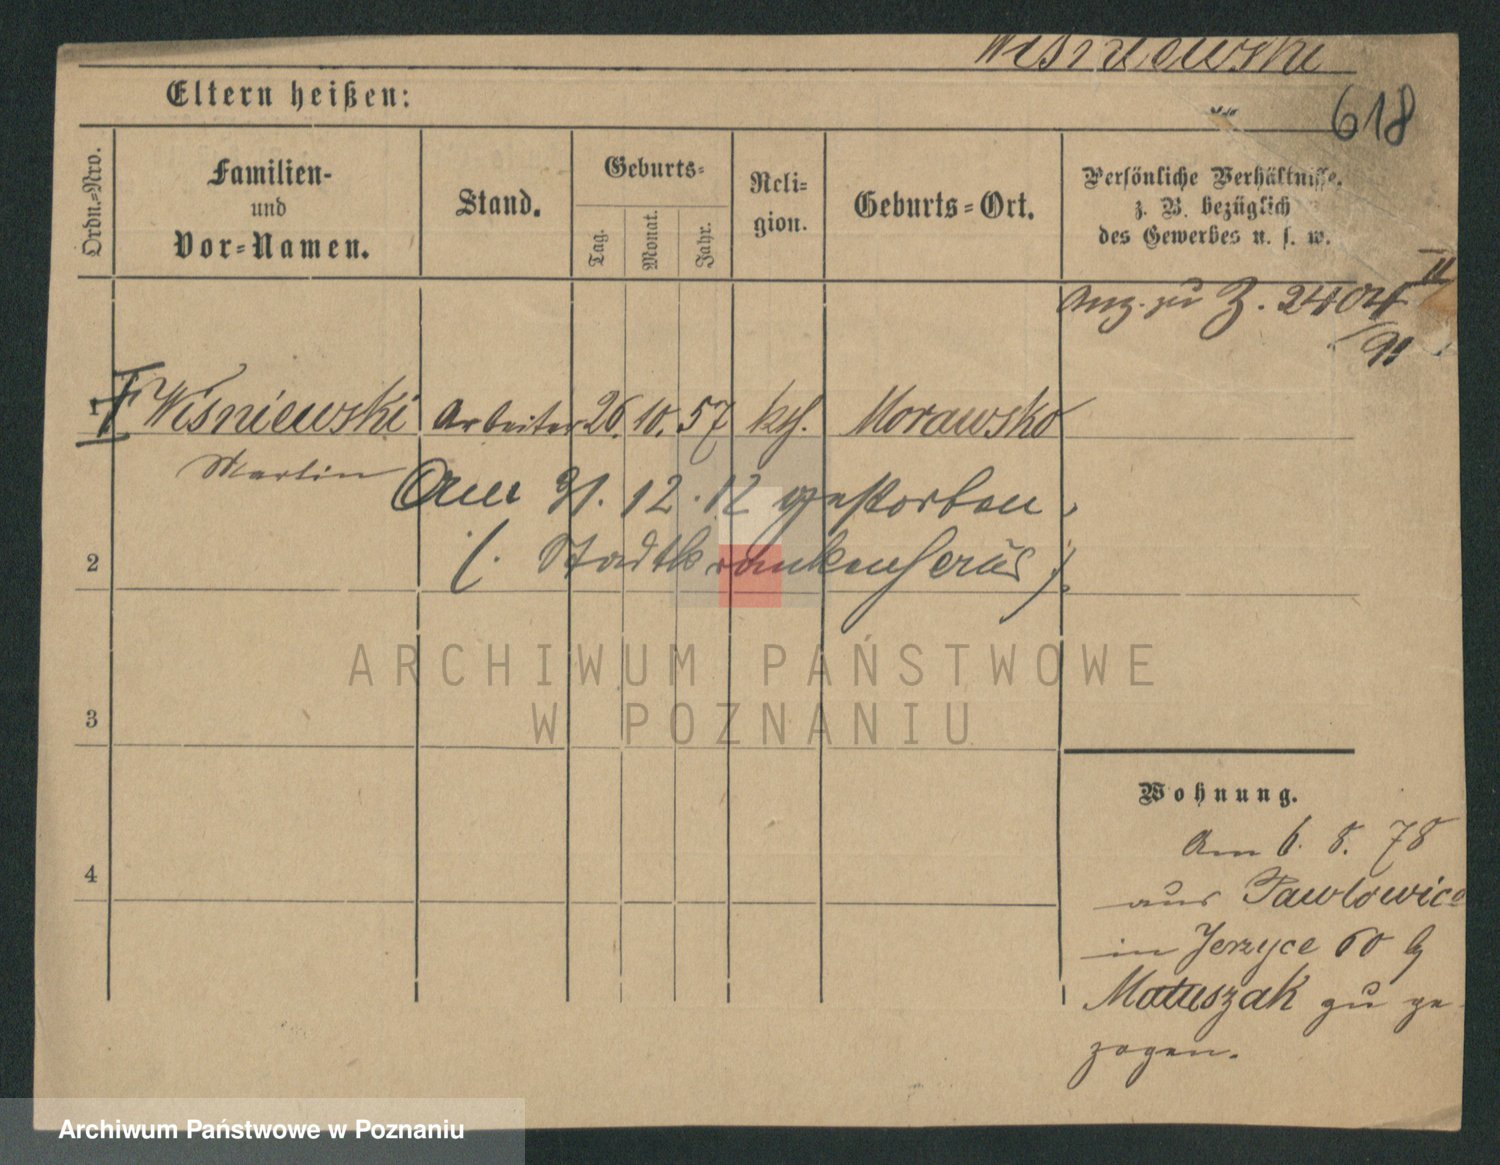 Wiśniewski
Eltern heißen:
618
Ordn.=Nro.
Familien-
und
Vor=Namen.
Stand.
Geburts=
Tag.
Monat.
Jahr.
Reli=
gion.
Geburts=Ort.
Persönliche Verhältnisse.
z. B. bezüglich
des Gewerbes u. s. w.
Anz. zu Z. 2404 II
/91
1 Wiśniewski Arbeiter 26. 10. 57 kth. Morawsko
Martin
Am 31. 12. 12 gestorben,
2 (. Stadtkrankenhaus .)
ARCHIWUM PAŃSTWOWE
W POZNANIU
3
Wohnung.
Am 6. 8. 78
4
aus Pawlowice
in Jerzyce 60 b
Matuszak zu ge-
zogen.
Archiwum Państwowe w Poznaniu